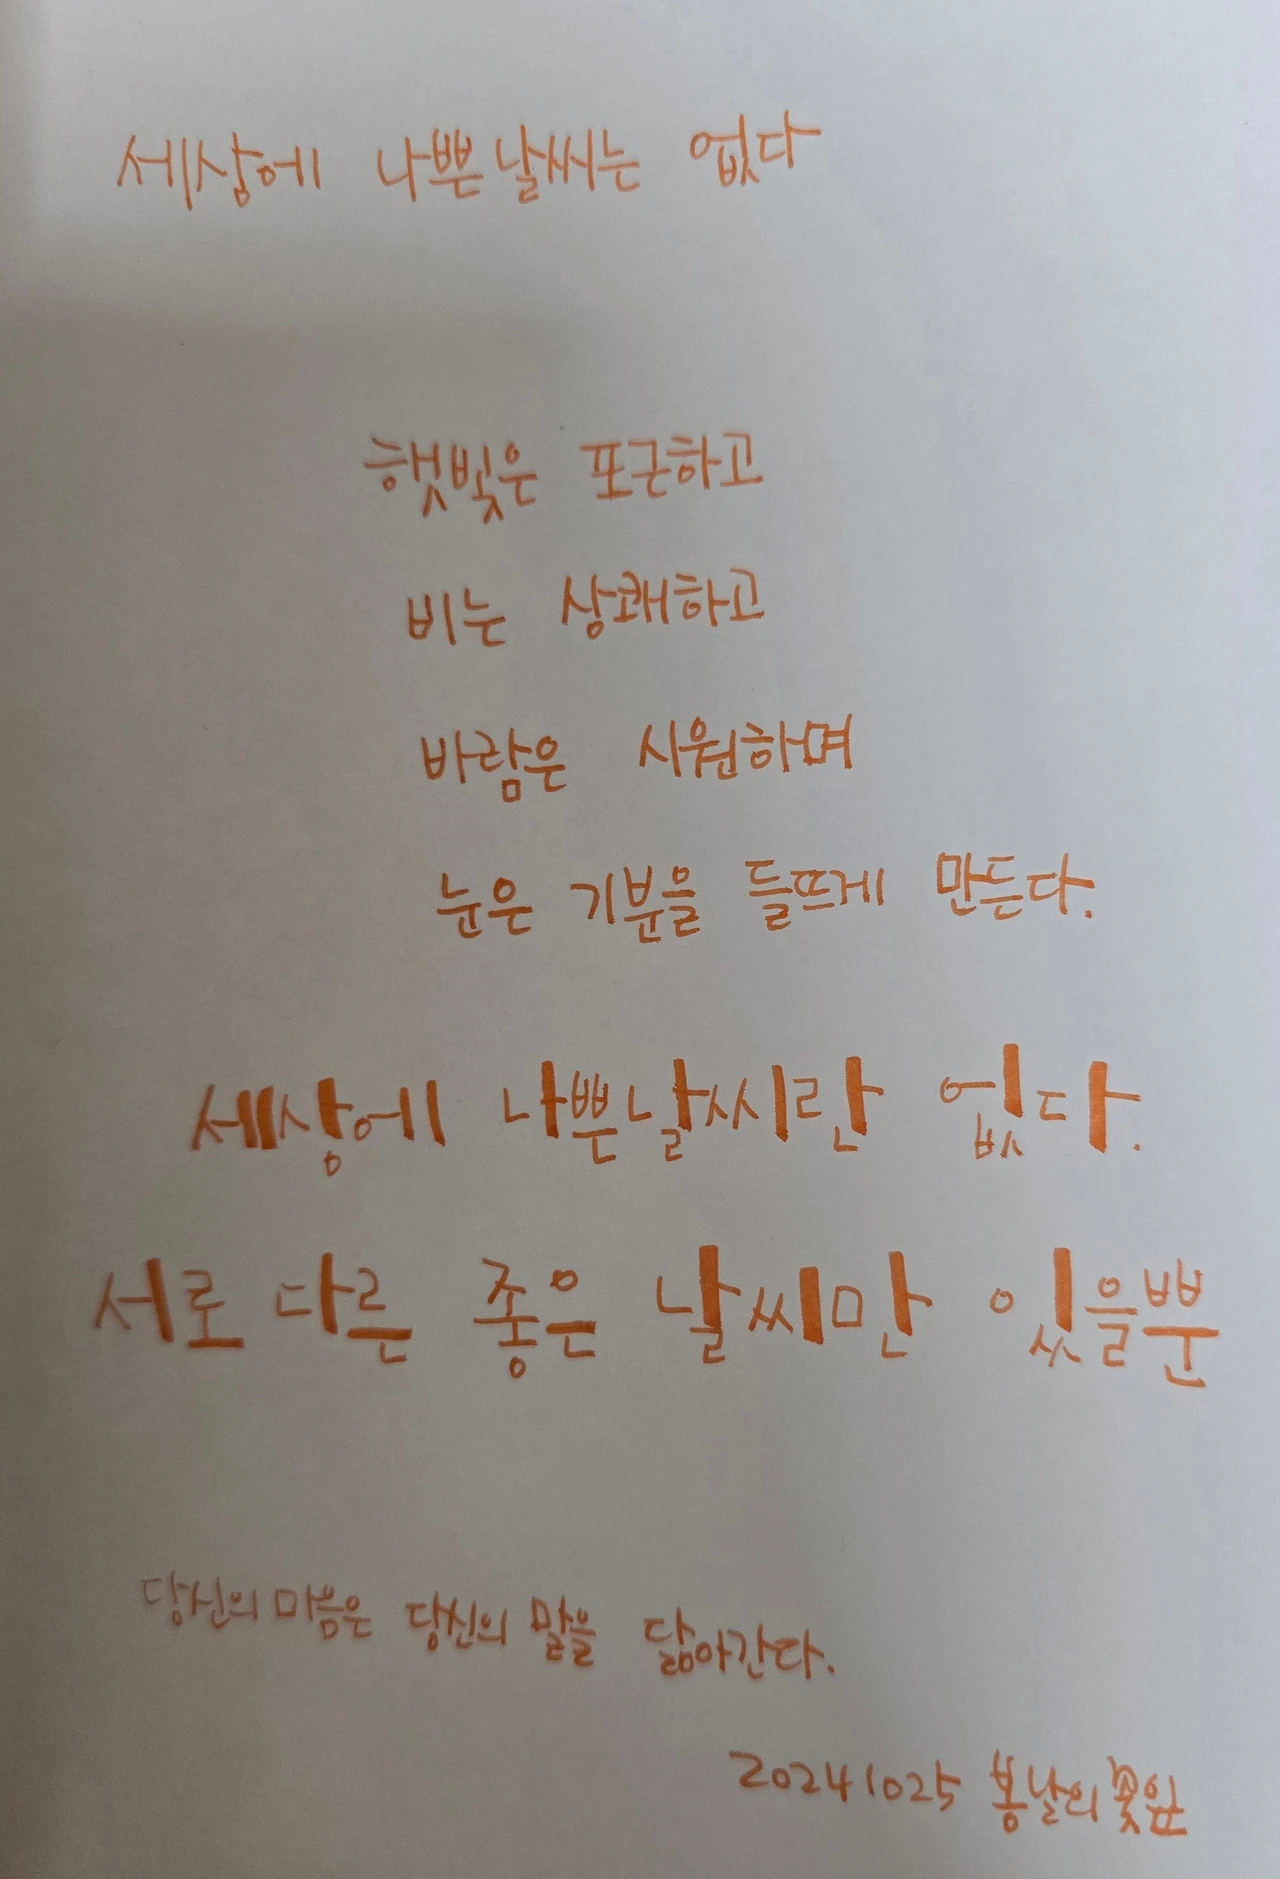 세상에 나쁜 날씨는 없다
햇빛은 포근하고
비는 상쾌하고
바람은 시원하며
눈은 기분을 들뜨게 만든다.
세상에 나쁜날씨란 없다.
서로 다른 좋은 날씨만 있을뿐
당신의 마음은 당신의 말을 닮아간다.
20241025 봄날의